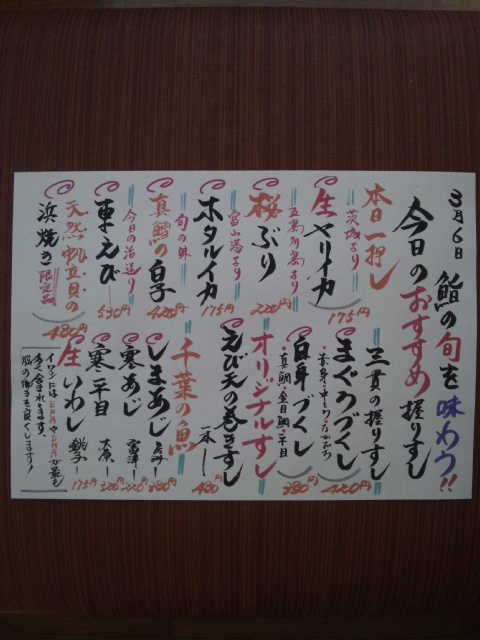 3月6日
鮨の旬を味わう!!
今日のおすすめ握りずし
本日一押し
茨城より
生ヤリイカ
175円
五島列島より
桜ぶり
220円
富山湾より
ホタルイカ
175円
旬の味
真鱈の白子
420円
今日の活造り
車えび
530円
天然帆立貝の
浜焼き 限定品
480円
三貫の握りずし
まぐろづくし
・赤身・中とろ・びんちょう
420円
白身づくし
・真鯛・金目鯛・平目
380円
オリジナルすし
えび天の巻きずし
一本
480円
千葉の魚
しまあじ
380円
寒あじ
富津
220円
寒平目
大原
320円
生いわし
銚子
175円
イワシにはEPAやDHAが最も
多く含まれてます。
脳の働きを良くします!